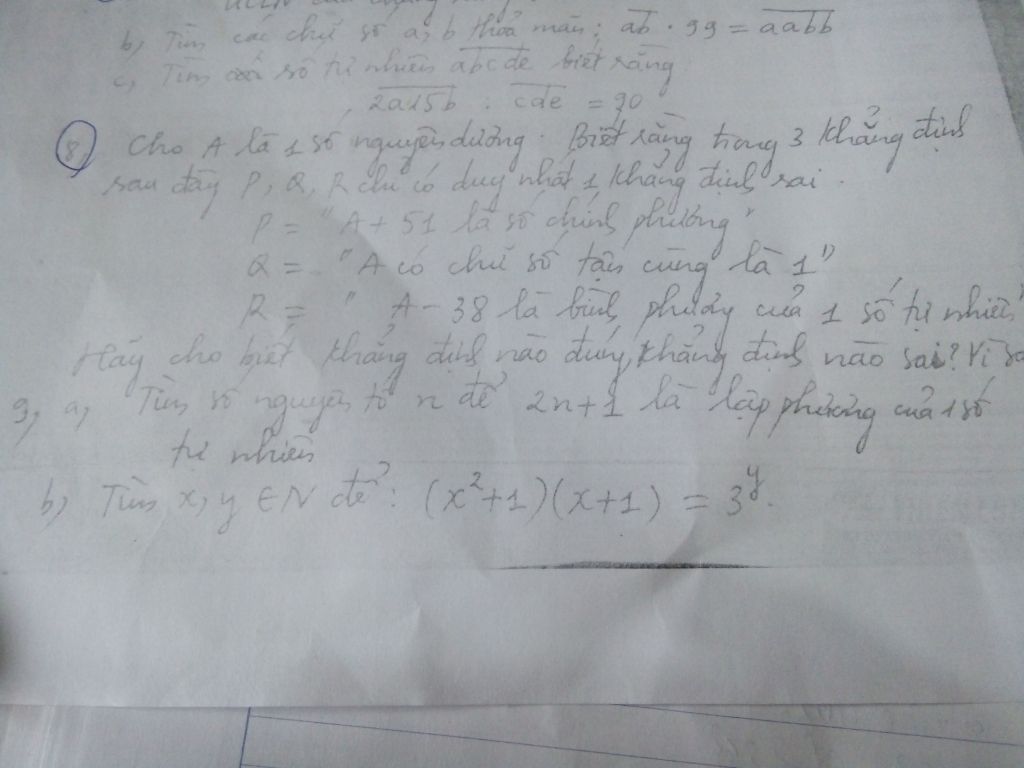 ƯCLN của
b, Tìm các chữ số a, b thoả mãn: ab . 99 = aabb
c, Tìm số tự nhiên abcde biết rằng
2a15b : cde = 90
8 Cho A là 1 số nguyên dương. Biết rằng trong 3 khẳng định
sau đây P, Q, R chỉ có duy nhất 1 khẳng định sai.
P = "A + 51 là số chính phương"
Q = "A có chữ số tận cùng là 1"
R = " A - 38 là bình phương của 1 số tự nhiên"
Hãy cho biết khẳng định nào đúng, khẳng định nào sai? Vì
9, a, Tìm số nguyên tố n để 2n+1 là lập phương của 1 số
tự nhiên
b, Tìm x, y ∈ N để: (x²+1)(x+1) = 3^y.